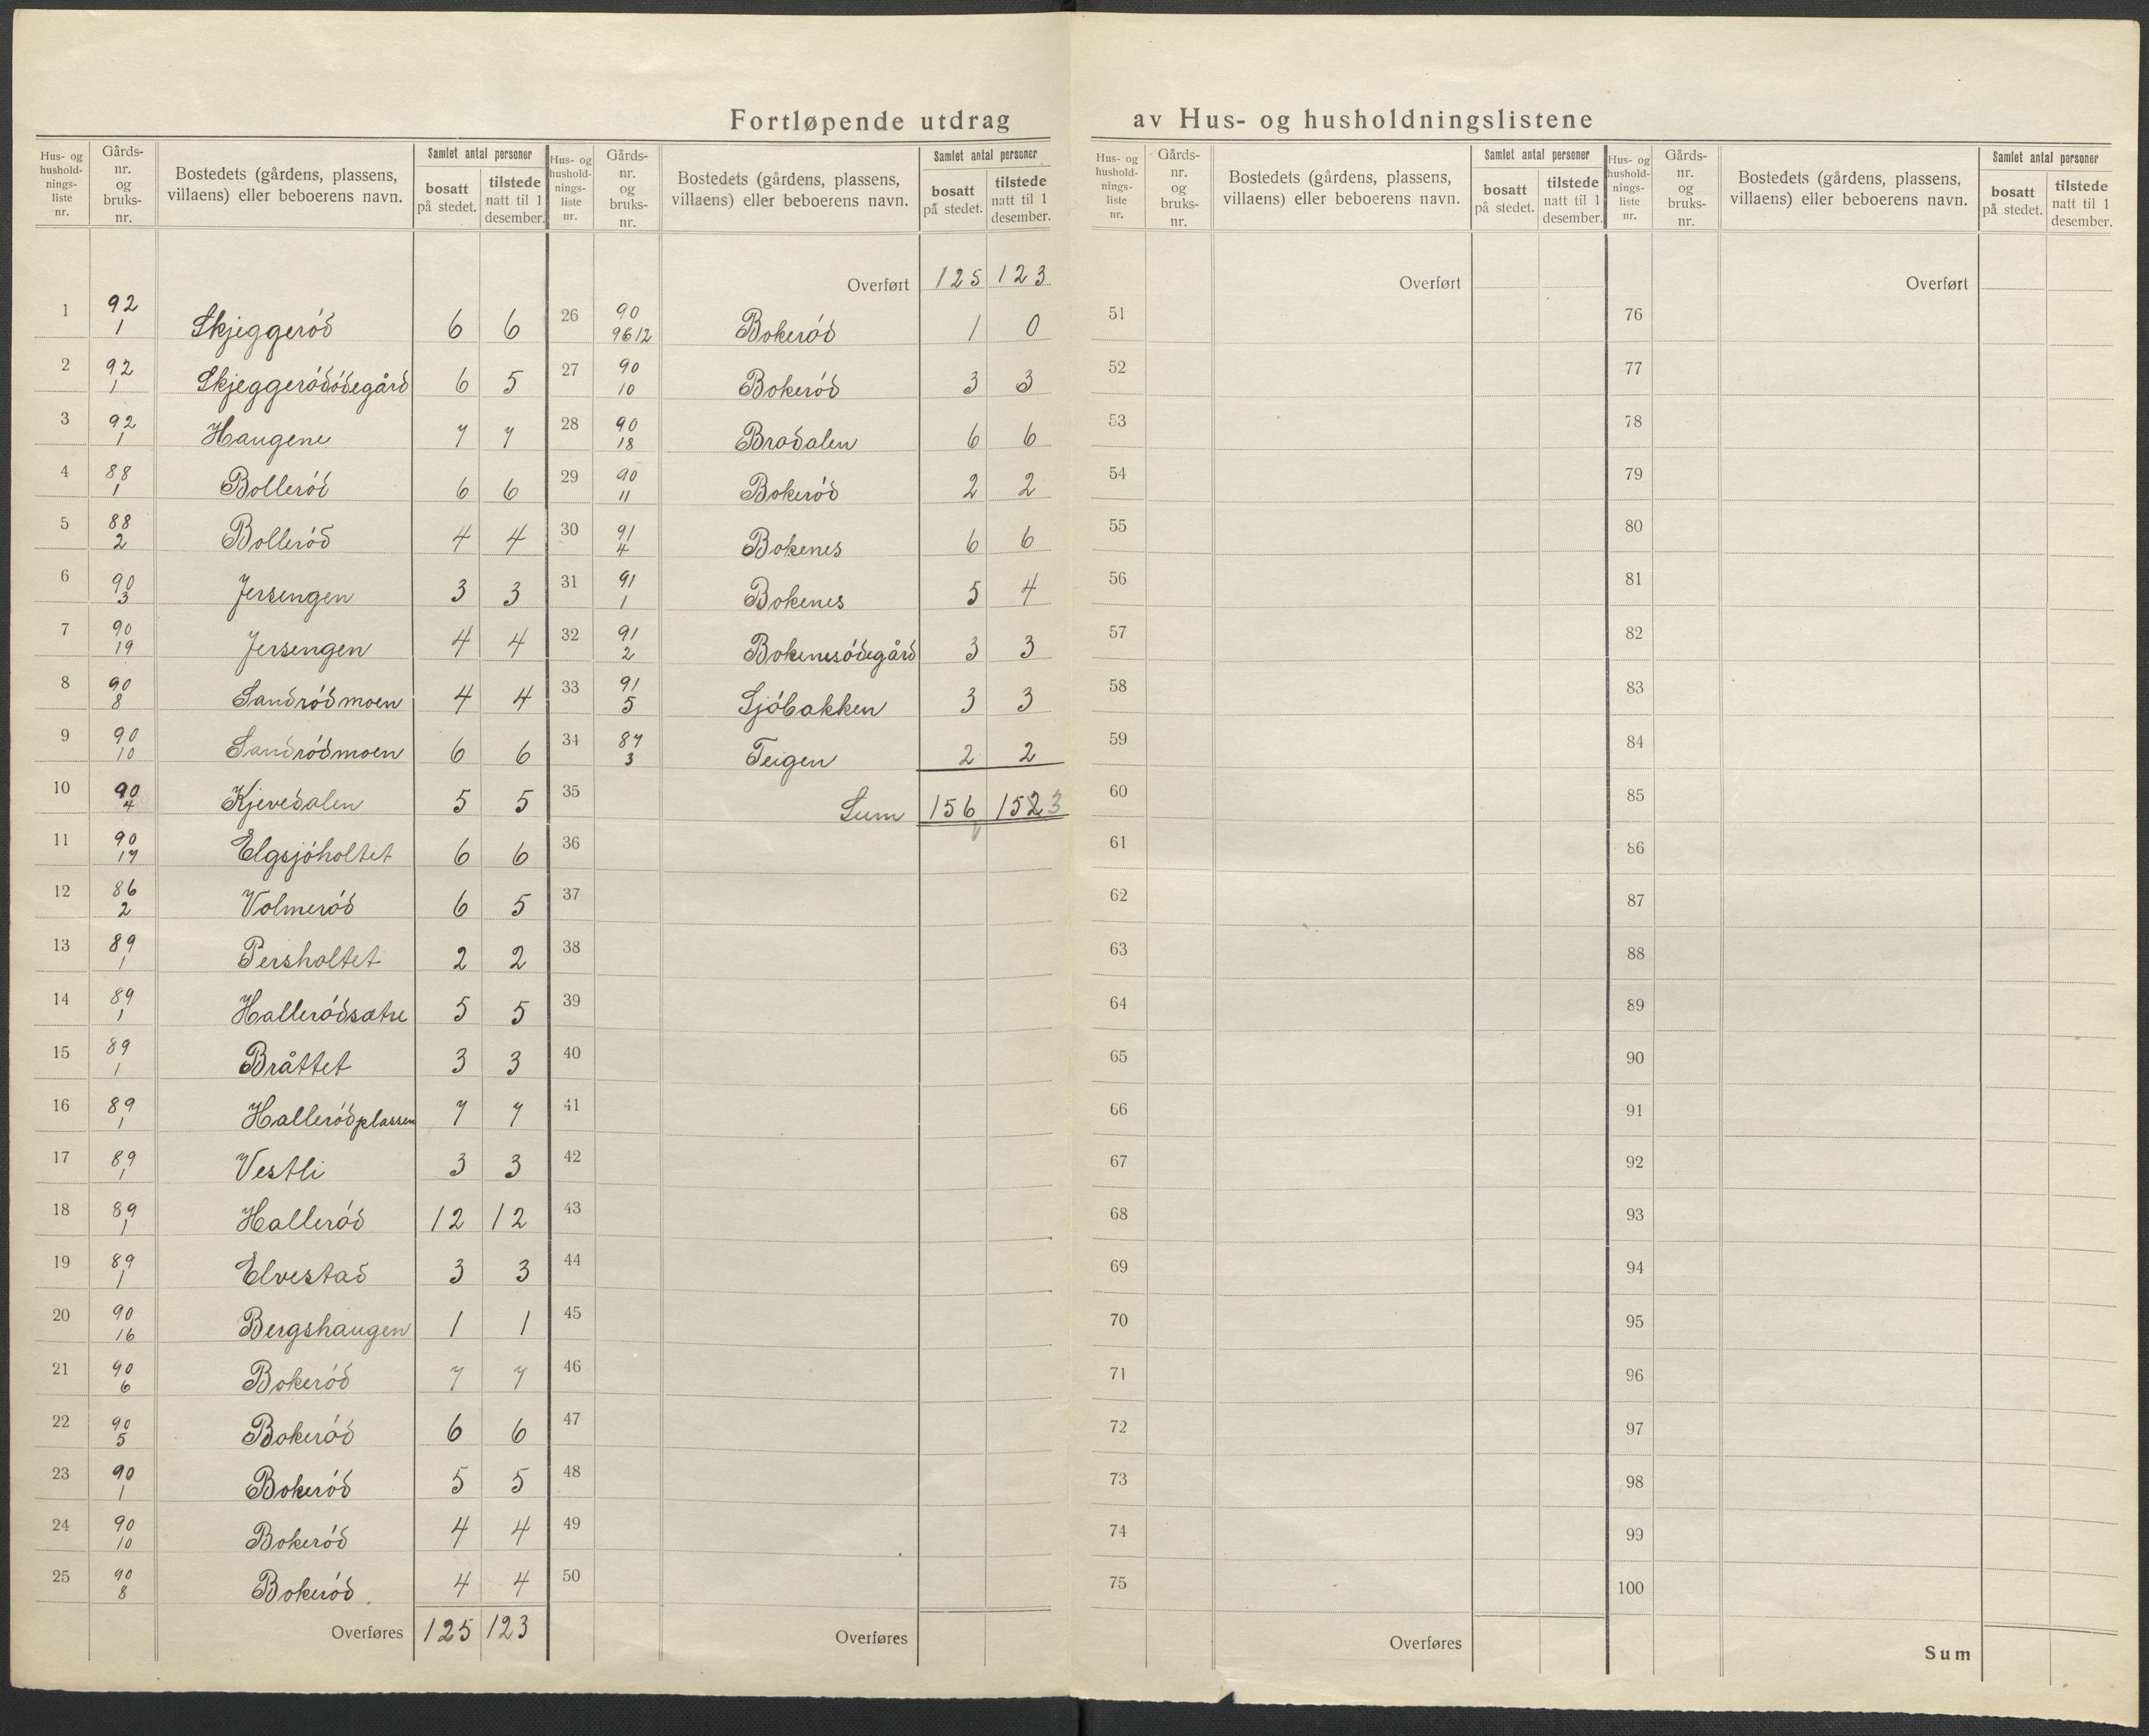 Fortløpende utdrag av Hus- og husholdningslistene
Hus- og husholdnings-liste nr. Gårds-nr. og bruks-nr. Bostedets (gårdens, plassens, villaens) eller beboerens navn. Samlet antal personer bosatt på stedet. tilstede natt til 1 desember.
1 92/1 Skjeggeród 6 6
2 92/1 Skjeggeródódegård 6 5
3 92/1 Haugene 7 7
4 88/1 Bolleród 6 6
5 88/2 Bolleród 4 4
6 90/3 Jersengen 3 3
7 90/19 Jersengen 4 4
8 90/8 Sandródmoen 4 4
9 90/10 Sandródmoen 6 6
10 90/4 Kjevedalen 5 5
11 90/17 Elgsjóholtet 6 6
12 86/2 Volmeród 6 5
13 89/1 Persholtet 2 2
14 89/1 Halleródsætre 5 5
15 89/1 Bråttet 3 3
16 89/1 Halleródplassen 7 7
17 89/1 Vestli 3 3
18 89/1 Halleród 12 12
19 89/1 Elvestad 3 3
20 90/16 Bergshaugen 1 1
21 90/6 Bokeród 7 7
22 90/5 Bokeród 6 6
23 90/1 Bokeród 5 5
24 90/10 Bokeród 4 4
25 90/8 Bokeród. 4 4
Overføres 125 123
Hus- og husholdnings-liste nr. Gårds-nr. og bruks-nr. Bostedets (gårdens, plassens, villaens) eller beboerens navn. Samlet antal personer bosatt på stedet. tilstede natt til 1 desember.
Overført 125 123
26 90/9612 Bokeród 1 0
27 90/10 Bokeród 3 3
28 90/18 Bradalen 6 6
29 90/11 Bokeród 2 2
30 91/4 Bokenes 6 6
31 91/1 Bokenes 5 4
32 91/2 Bokenesódegård 3 3
33 91/5 Sjóbakken 3 3
34 87/3 Teigen 2 2
35 Sum 156 152 3
36
37
38
39
40
41
42
43
44
45
46
47
48
49
50
Overføres
Hus- og husholdnings-liste nr. Gårds-nr. og bruks-nr. Bostedets (gårdens, plassens, villaens) eller beboerens navn. Samlet antal personer bosatt på stedet. tilstede natt til 1 desember.
Overført
51
52
53
54
55
56
57
58
59
60
61
62
63
64
65
66
67
68
69
70
71
72
73
74
75
Overføres
Hus- og husholdnings-liste nr. Gårds-nr. og bruks-nr. Bostedets (gårdens, plassens, villaens) eller beboerens navn. Samlet antal personer bosatt på stedet. tilstede natt til 1 desember.
Overført
76
77
78
79
80
81
82
83
84
85
86
87
88
89
90
91
92
93
94
95
96
97
98
99
100
Sum